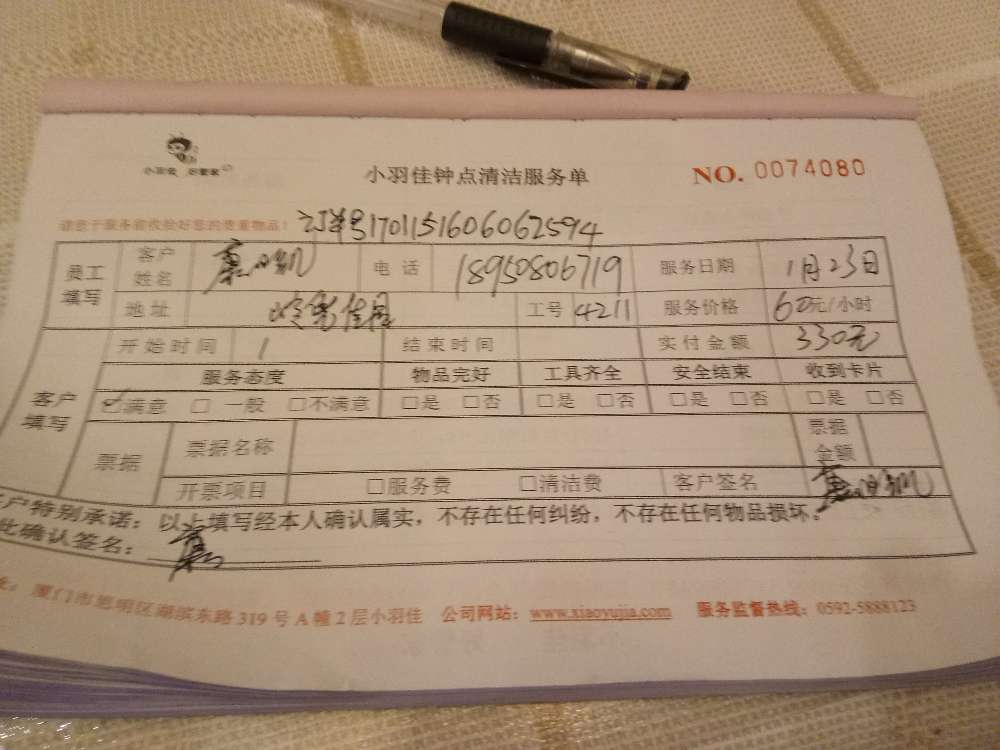 小羽佳 好管家
小羽佳钟点清洁服务单
NO. 0074080
请您于服务前收检好您的贵重物品!
订单号1701151606062594
员工填写 客户姓名 电话 18950806719 服务日期 1月23日
地址 佳园 工号 4211 服务价格 60元/小时
客户填写 开始时间 1 结束时间 实付金额 330元
服务态度 物品完好 工具齐全 安全结束 收到卡片
☑满意 □一般 □不满意 □是 □否 □是 □否 □是 □否 □是 □否
票据 票据名称 票据金额
开票项目 □服务费 □清洁费 客户签名
户特别承诺:以上填写经本人确认属实,不存在任何纠纷,不存在任何物品损坏。
此确认签名:
址:厦门市思明区湖滨东路319号A幢2层小羽佳 公司网站:www.xiaoyujia.com 服务监督热线:0592-5888123